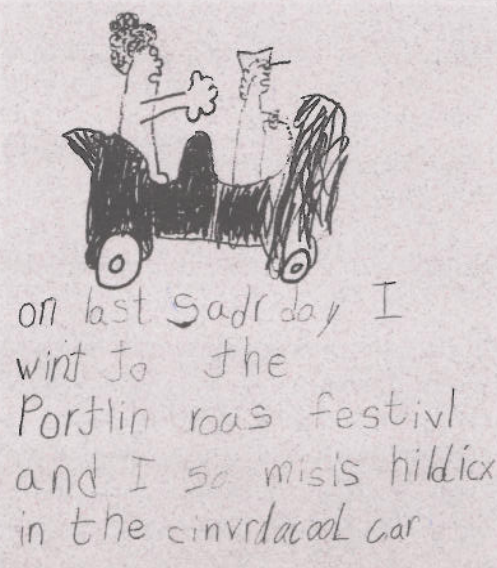 on last Sadrday I
wint to the
Portlin roas festivl
and I so misis hildicx
in the cinvrdacool car